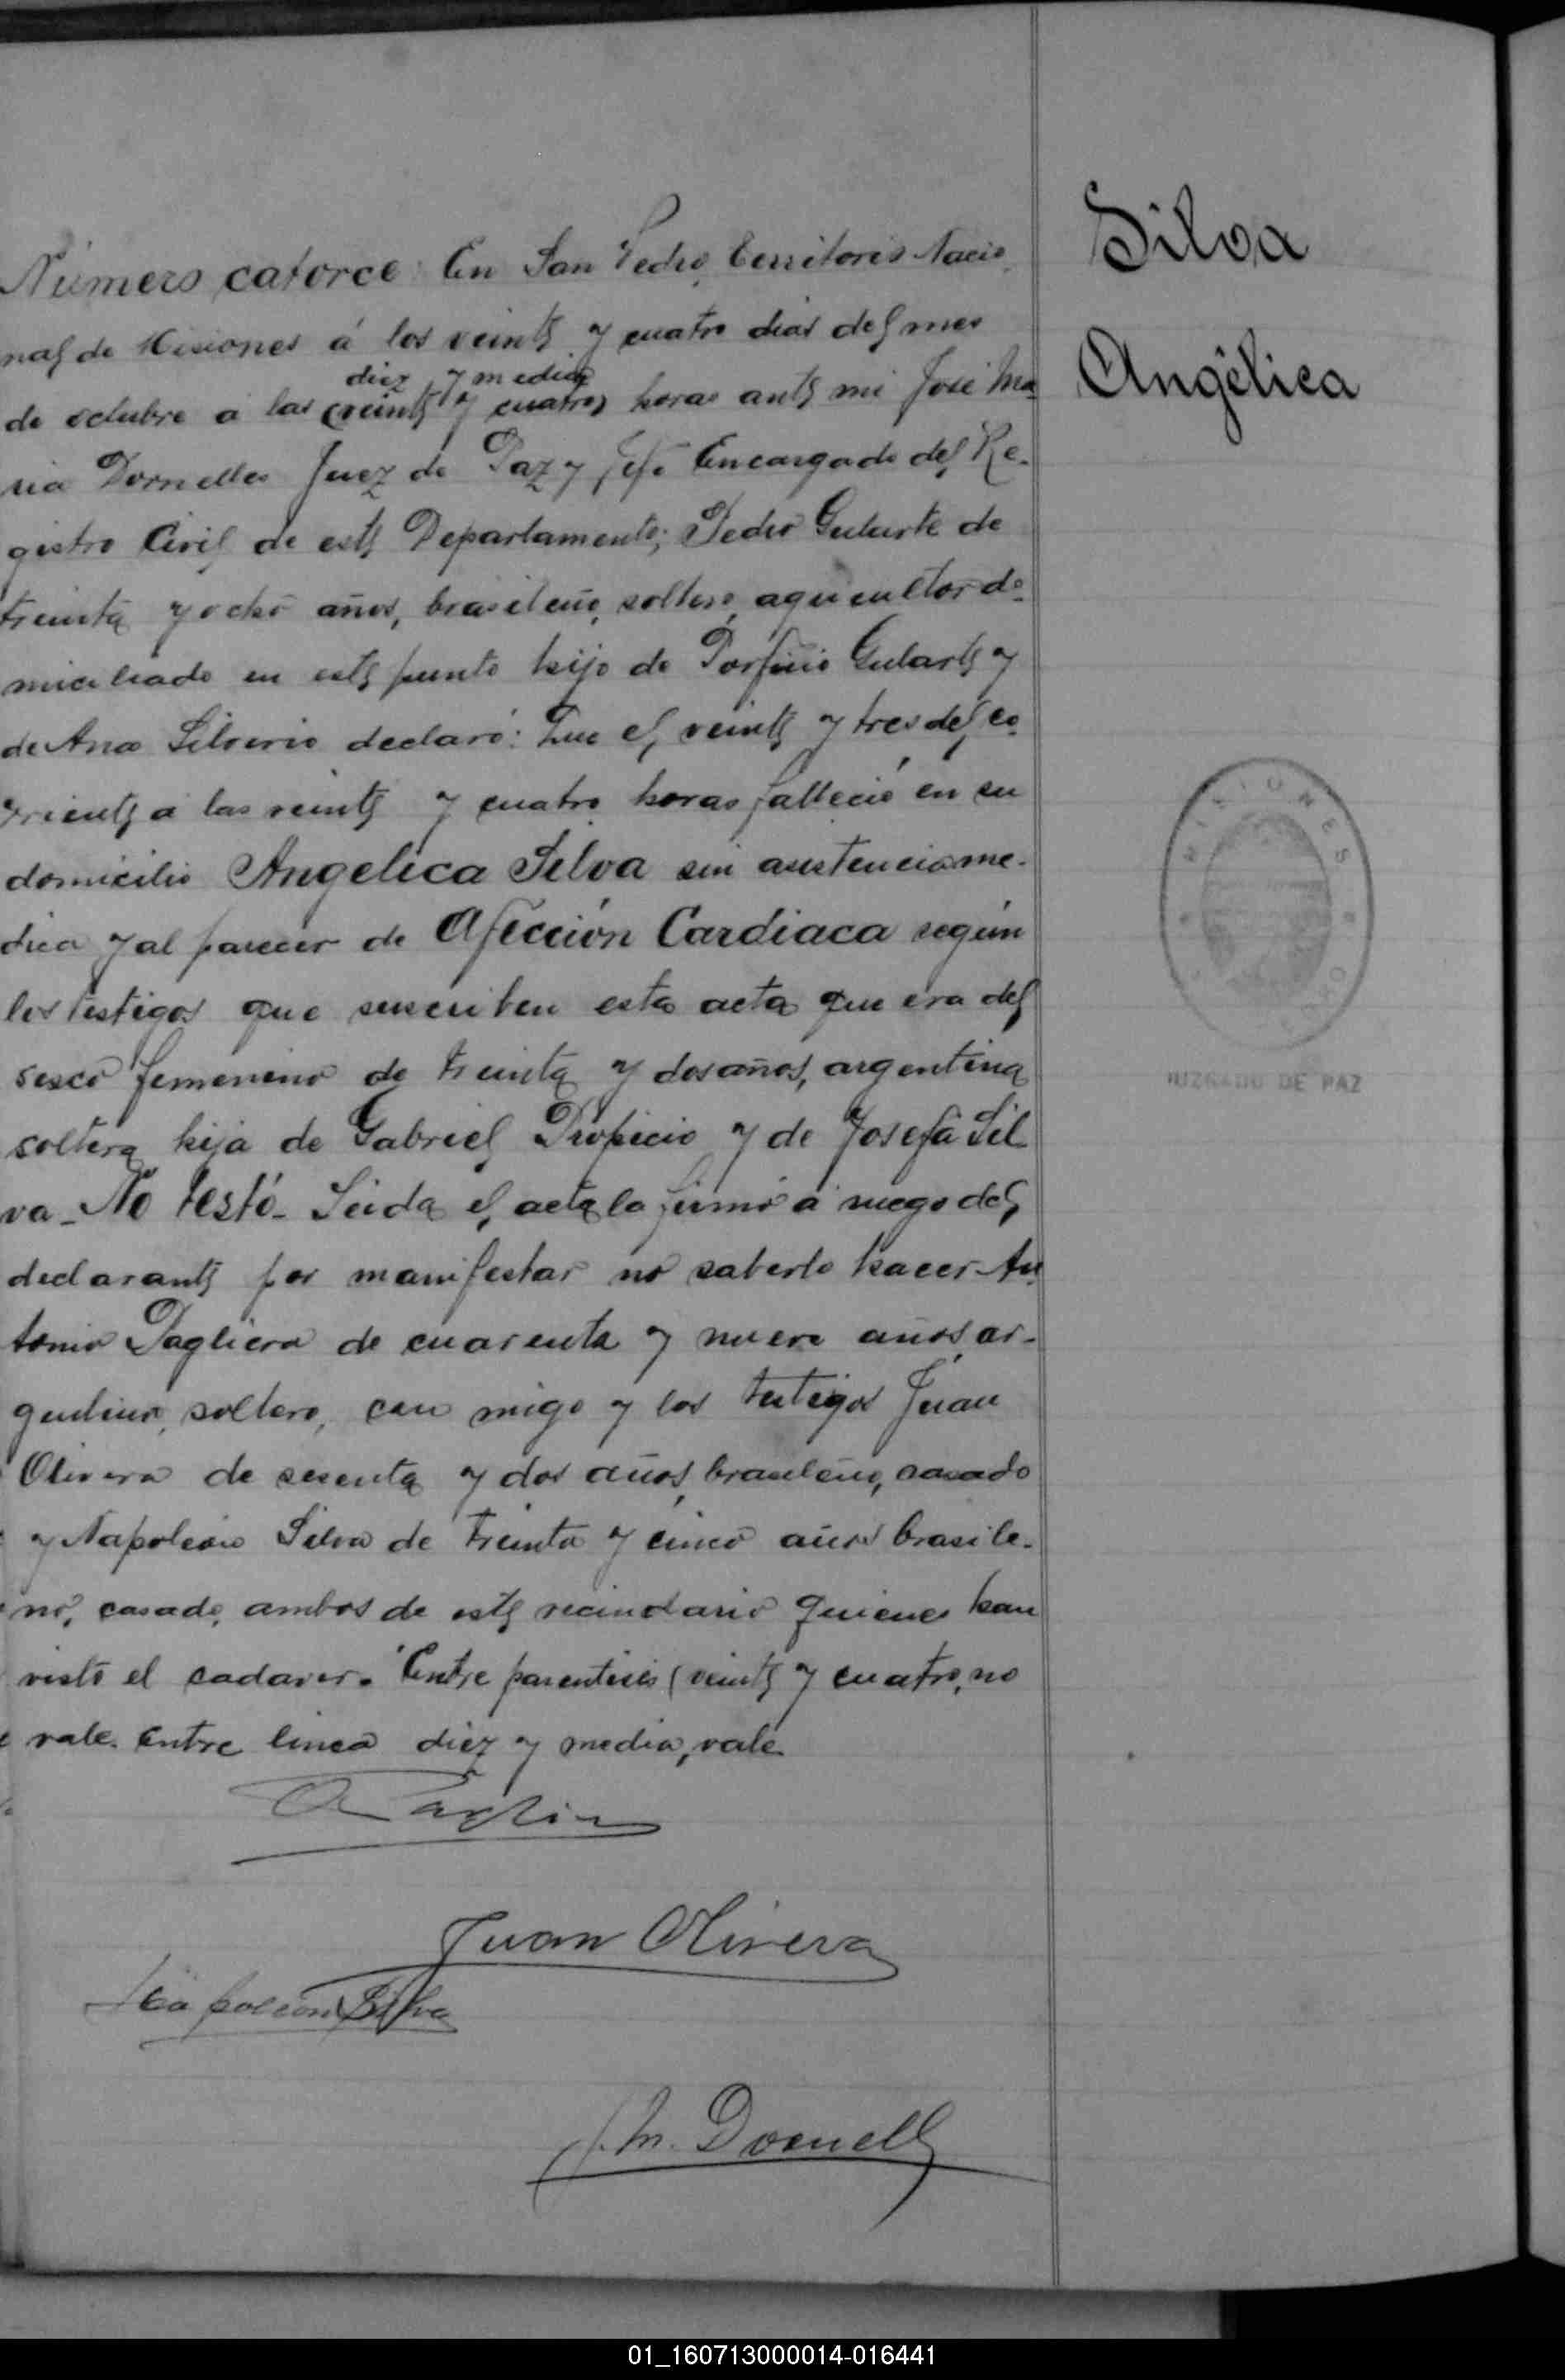 Número catorce En San Pedro, Territorio Nacio
nal de Misiones á los veinte y cuatro dias del mes
diez y media
de octubre a las (veinte y cuatro) horas ante mi José Ma
ria Dornelles Juez de Paz y Jefe Encargado del Re-
gistro Civil de este Departamento; Pedro Gularte de
treinta y ocho años, brasileño, soltero, agricultor do
miciliado en este punto hijo de Porfirio Gularte y
de Ana Silverio declaró: Que el veinte y tres del co
rriente a las veinte y cuatro horas falleció en su
domicilio Angelica Silva sin asistencia me-
dica y al parecer de Afección Cardiaca según
los testigos que suscriben esta acta que era del
sexo femenino de treinta y dos años, argentina
soltera hija de Gabriel Propicio y de Josefa Sil
va - No testó - Leida el acta la firmó a ruego del
declarante por manifestar no saberlo hacer An
tonio Pagliera de cuarenta y nueve años, ar-
gentino, soltero, con migo y los testigos Juan
Olivera de sesenta y dos años, brasileño, casado
y Napoleón Silva de treinta y cinco años brasile-
no, casado, ambos de este vecindario quienes han
visto el cadaver. Entre parentisis (veinte y cuatro, no
vale. Entre linea diez y media, vale.
Juan Olivera
Napoleon Silva
J. M. Dornell
Silva
Angélica
MISIONES
JUZGADO DE PAZ
01_160713000014-016441